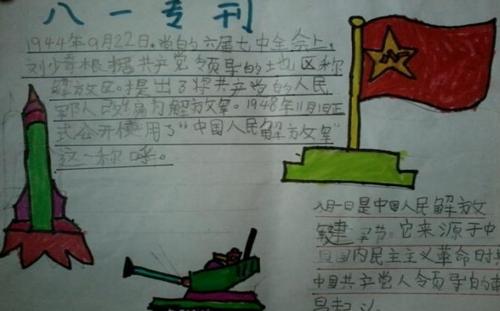 八一专刊
1944年9月22日,党的六届七中全会上,
刘少奇根据共产党领导的地区称
解放区,提出了将共产党的人民
军队改为解放军。1948年11月1日正
式公开使用了"中国人民解放军"
这一称呼。
八一
八月一日是中国人民解放
军建军节。它来源于中
国国内民主主义革命时
中国共产党人领导的南
昌起义